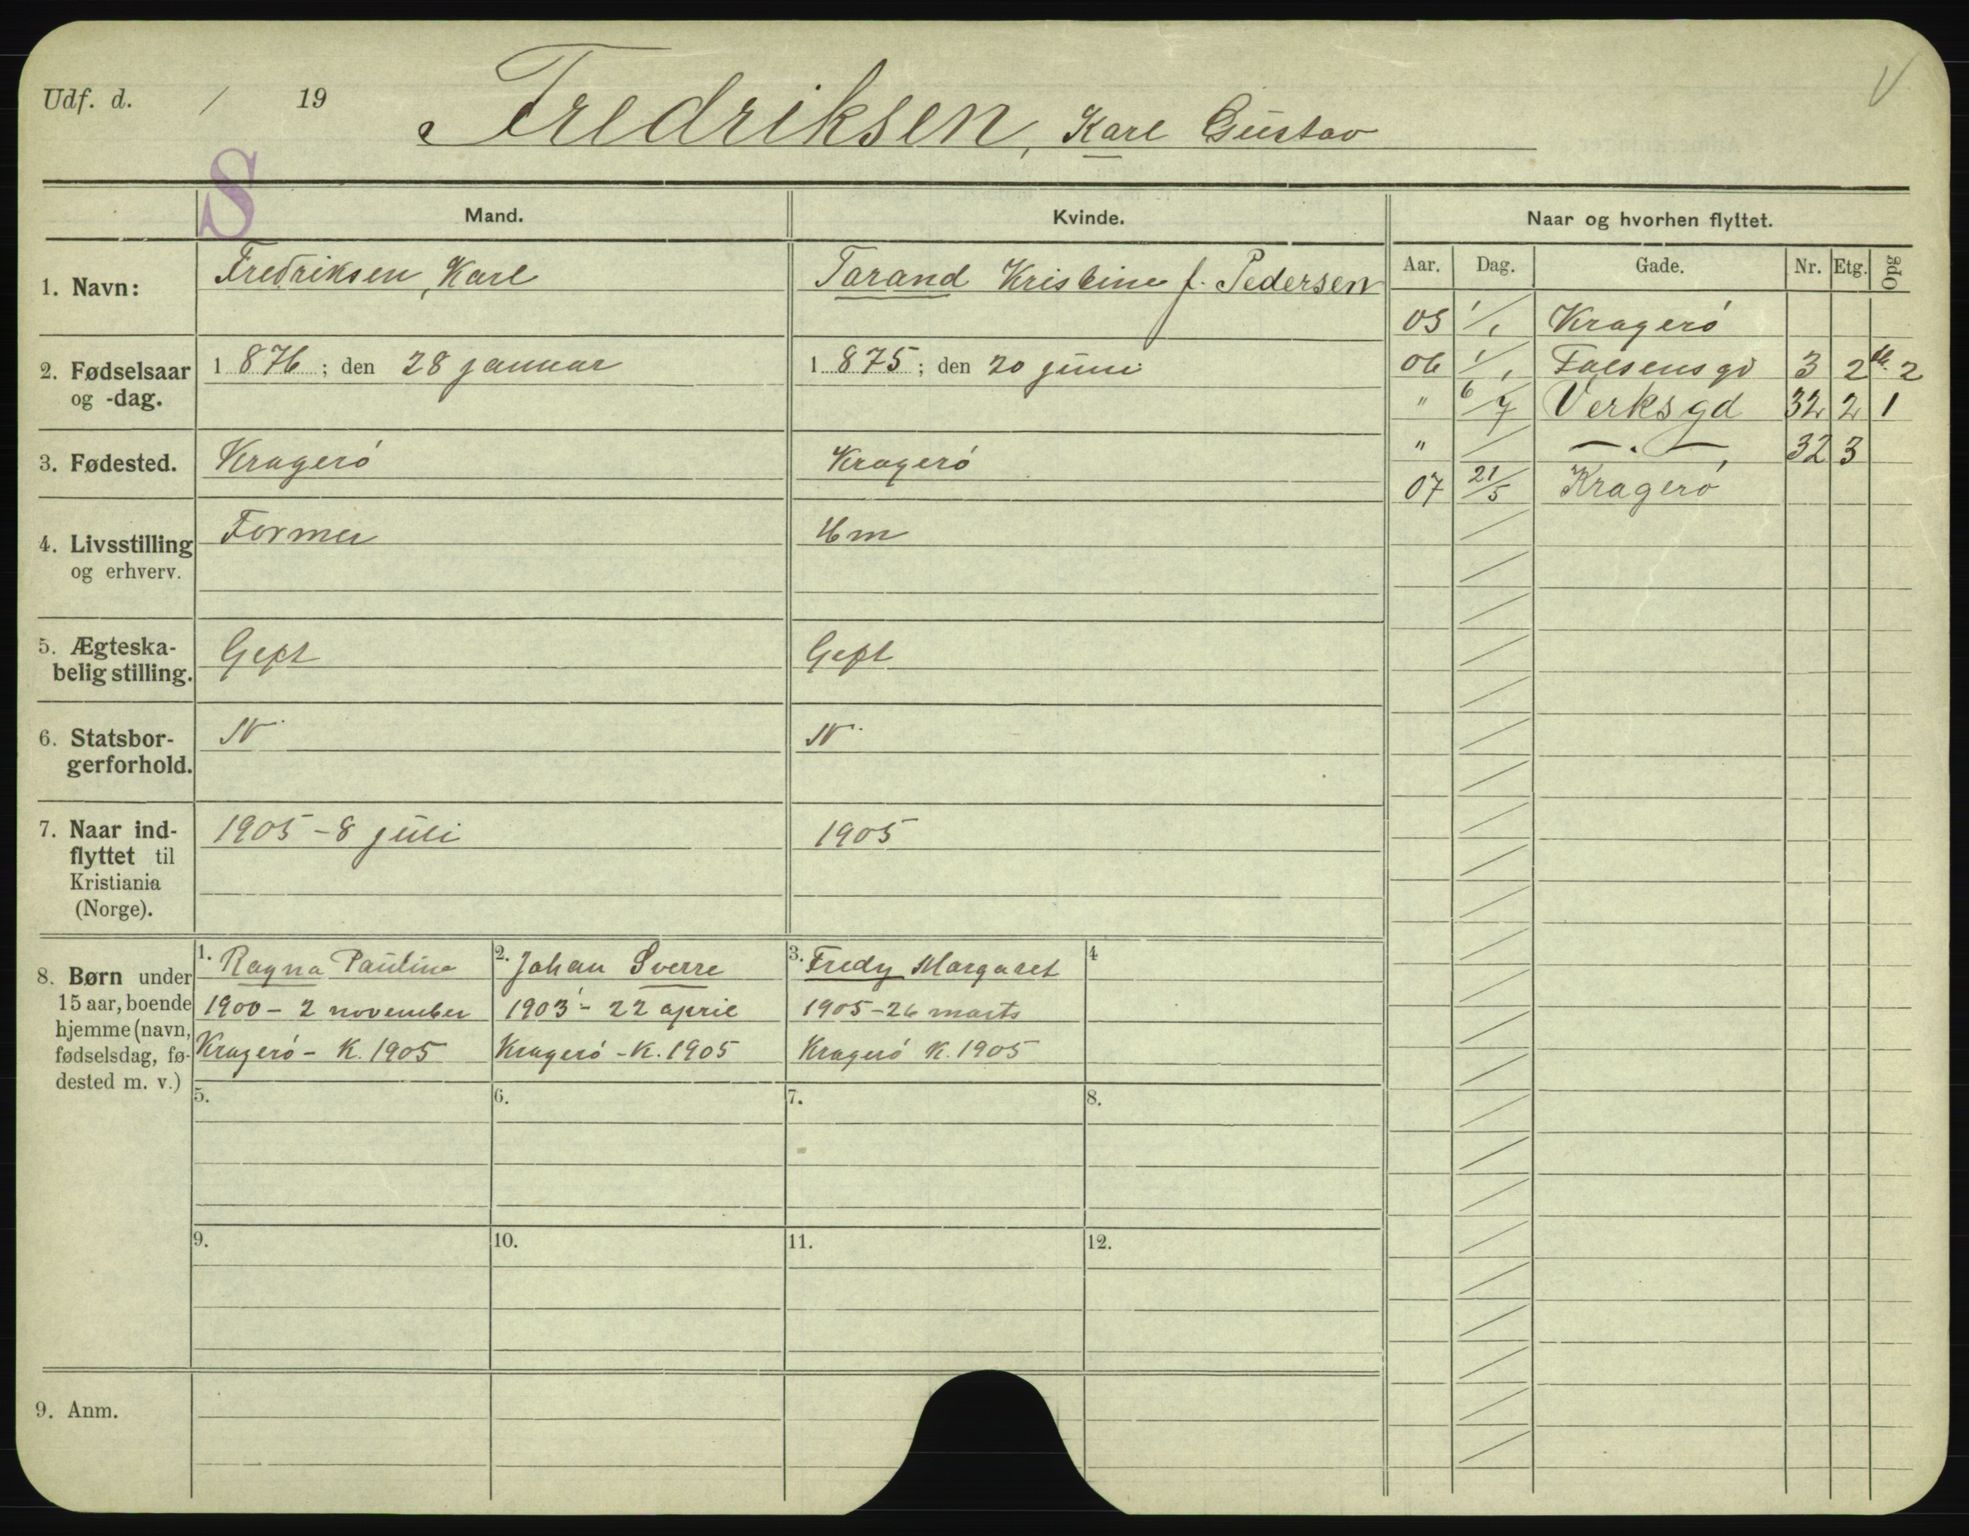 Udf. d. / 19
Fredriksen, Karl Gustav
V
S
Mand.
Kvinde.
Naar og hvorhen flyttet.
Aar. Dag. Gade. Nr. Etg. Opg
1. Navn:
Fredriksen, Karl
Tarand Kristine f. Pedersen
05 1/1 Kragerö
2. Fødselsaar
og -dag.
1 876 ; den 28 januar
1 875 ; den 20 juni
06 1/1 Falsensgd 3 2 2
" 6/7 Verksgd 32 2 1
" / — . — 32 3
07 21/5 Kragerö
3. Fødested.
Kragerö
Kragerö
4. Livsstilling
og erhverv.
Former
Hm
5. Ægteska-
belig stilling.
Gift
Gift
6. Statsbor-
gerforhold.
N.
N.
7. Naar ind-
flyttet til
Kristiania
(Norge).
1905 - 8 juli
1905
8. Børn under
15 aar, boende
hjemme (navn,
fødselsdag, fø-
dested m. v.)
1. Ragna Pauline
1900 - 2 november
Kragerö - K. 1905
2. Johan Sverre
1903 - 22 april
Kragerö - K. 1905
3. Fredy Margaret
1905 - 26 marts
Kragerö K. 1905
4
5. 6. 7. 8.
9. 10. 11. 12.
9. Anm.